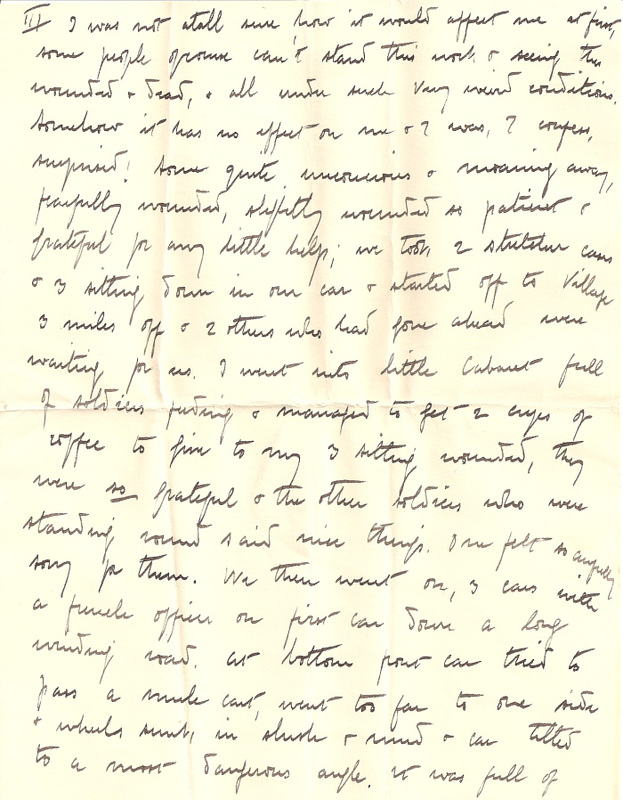 III I was not atall sure how it would affect me at first,
some people ofcourse can't stand this work & seeing the
wounded & dead, & all under such very weird conditions.
Somehow it has no effect on me & I was, I confess,
surprised! Some quite unconscious & moaning away,
fearfully wounded, slightly wounded so patient &
grateful for any little help; we took 2 stretcher cases
& 3 sitting down in our car & started off to Village
3 miles off & 2 others who had gone ahead were
waiting for us. I went into little Cabaret full
of soldiers feeding & managed to get 2 cups of
coffee to give to my 3 sitting wounded, they
were so grateful & the other soldiers who were
standing round said nice things. One felt so awfully
sorry for them. We then went on, 3 cars with
a french officer on first car down a long
winding road. At bottom front car tried to
pass a mule cart, went too far to one side
& wheels sunk in slush & mud & car tilted
to a most dangerous angle. It was full of